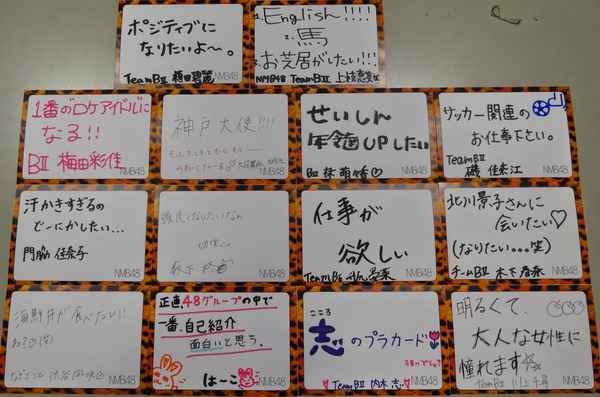 ポジティブに
なりたいよ〜。
TeamBⅡ 植田碧麗
NMB48
1.English!!!!
2.馬
3.お芝居がしたい!!!!
NMB48 TeamBⅡ 上枝恵美加
1番のロケアイドルに
なる!!
BⅡ 梅田彩佳
NMB48
神戸大使!!!!
もっともっともっともっと
かわいくなーる♡
NMB48
せいしん
年齢UPしたい
BⅡ 林 萌々香♡
NMB48
サッカー関連の
お仕事下さい。
TeamBⅡ
磯 佳奈江
NMB48
汗かきすぎるの
どーにかしたい...
門脇 佳奈子
NMB48
頭良くなりたいなぁ
切実に
NMB48
仕事が
欲しい
TeamBⅡ
NMB48
北川景子さんに
会いたい♡
(なりたい...笑)
チームBⅡ 木下春奈
NMB48
海鮮丼が食べたい!!
ね?♡(笑)
なぎこと 渋谷凪咲
NMB48
正直、48グループの中で
一番、自己紹介
面白いと思う。
はーこ
NMB48
こころ
志のプラカード
うまいでしょ?
TeamBⅡ 内木 志
NMB48
明るくて、
大人な女性に
憧れます☆
TeamBⅡ 川上千尋
NMB48